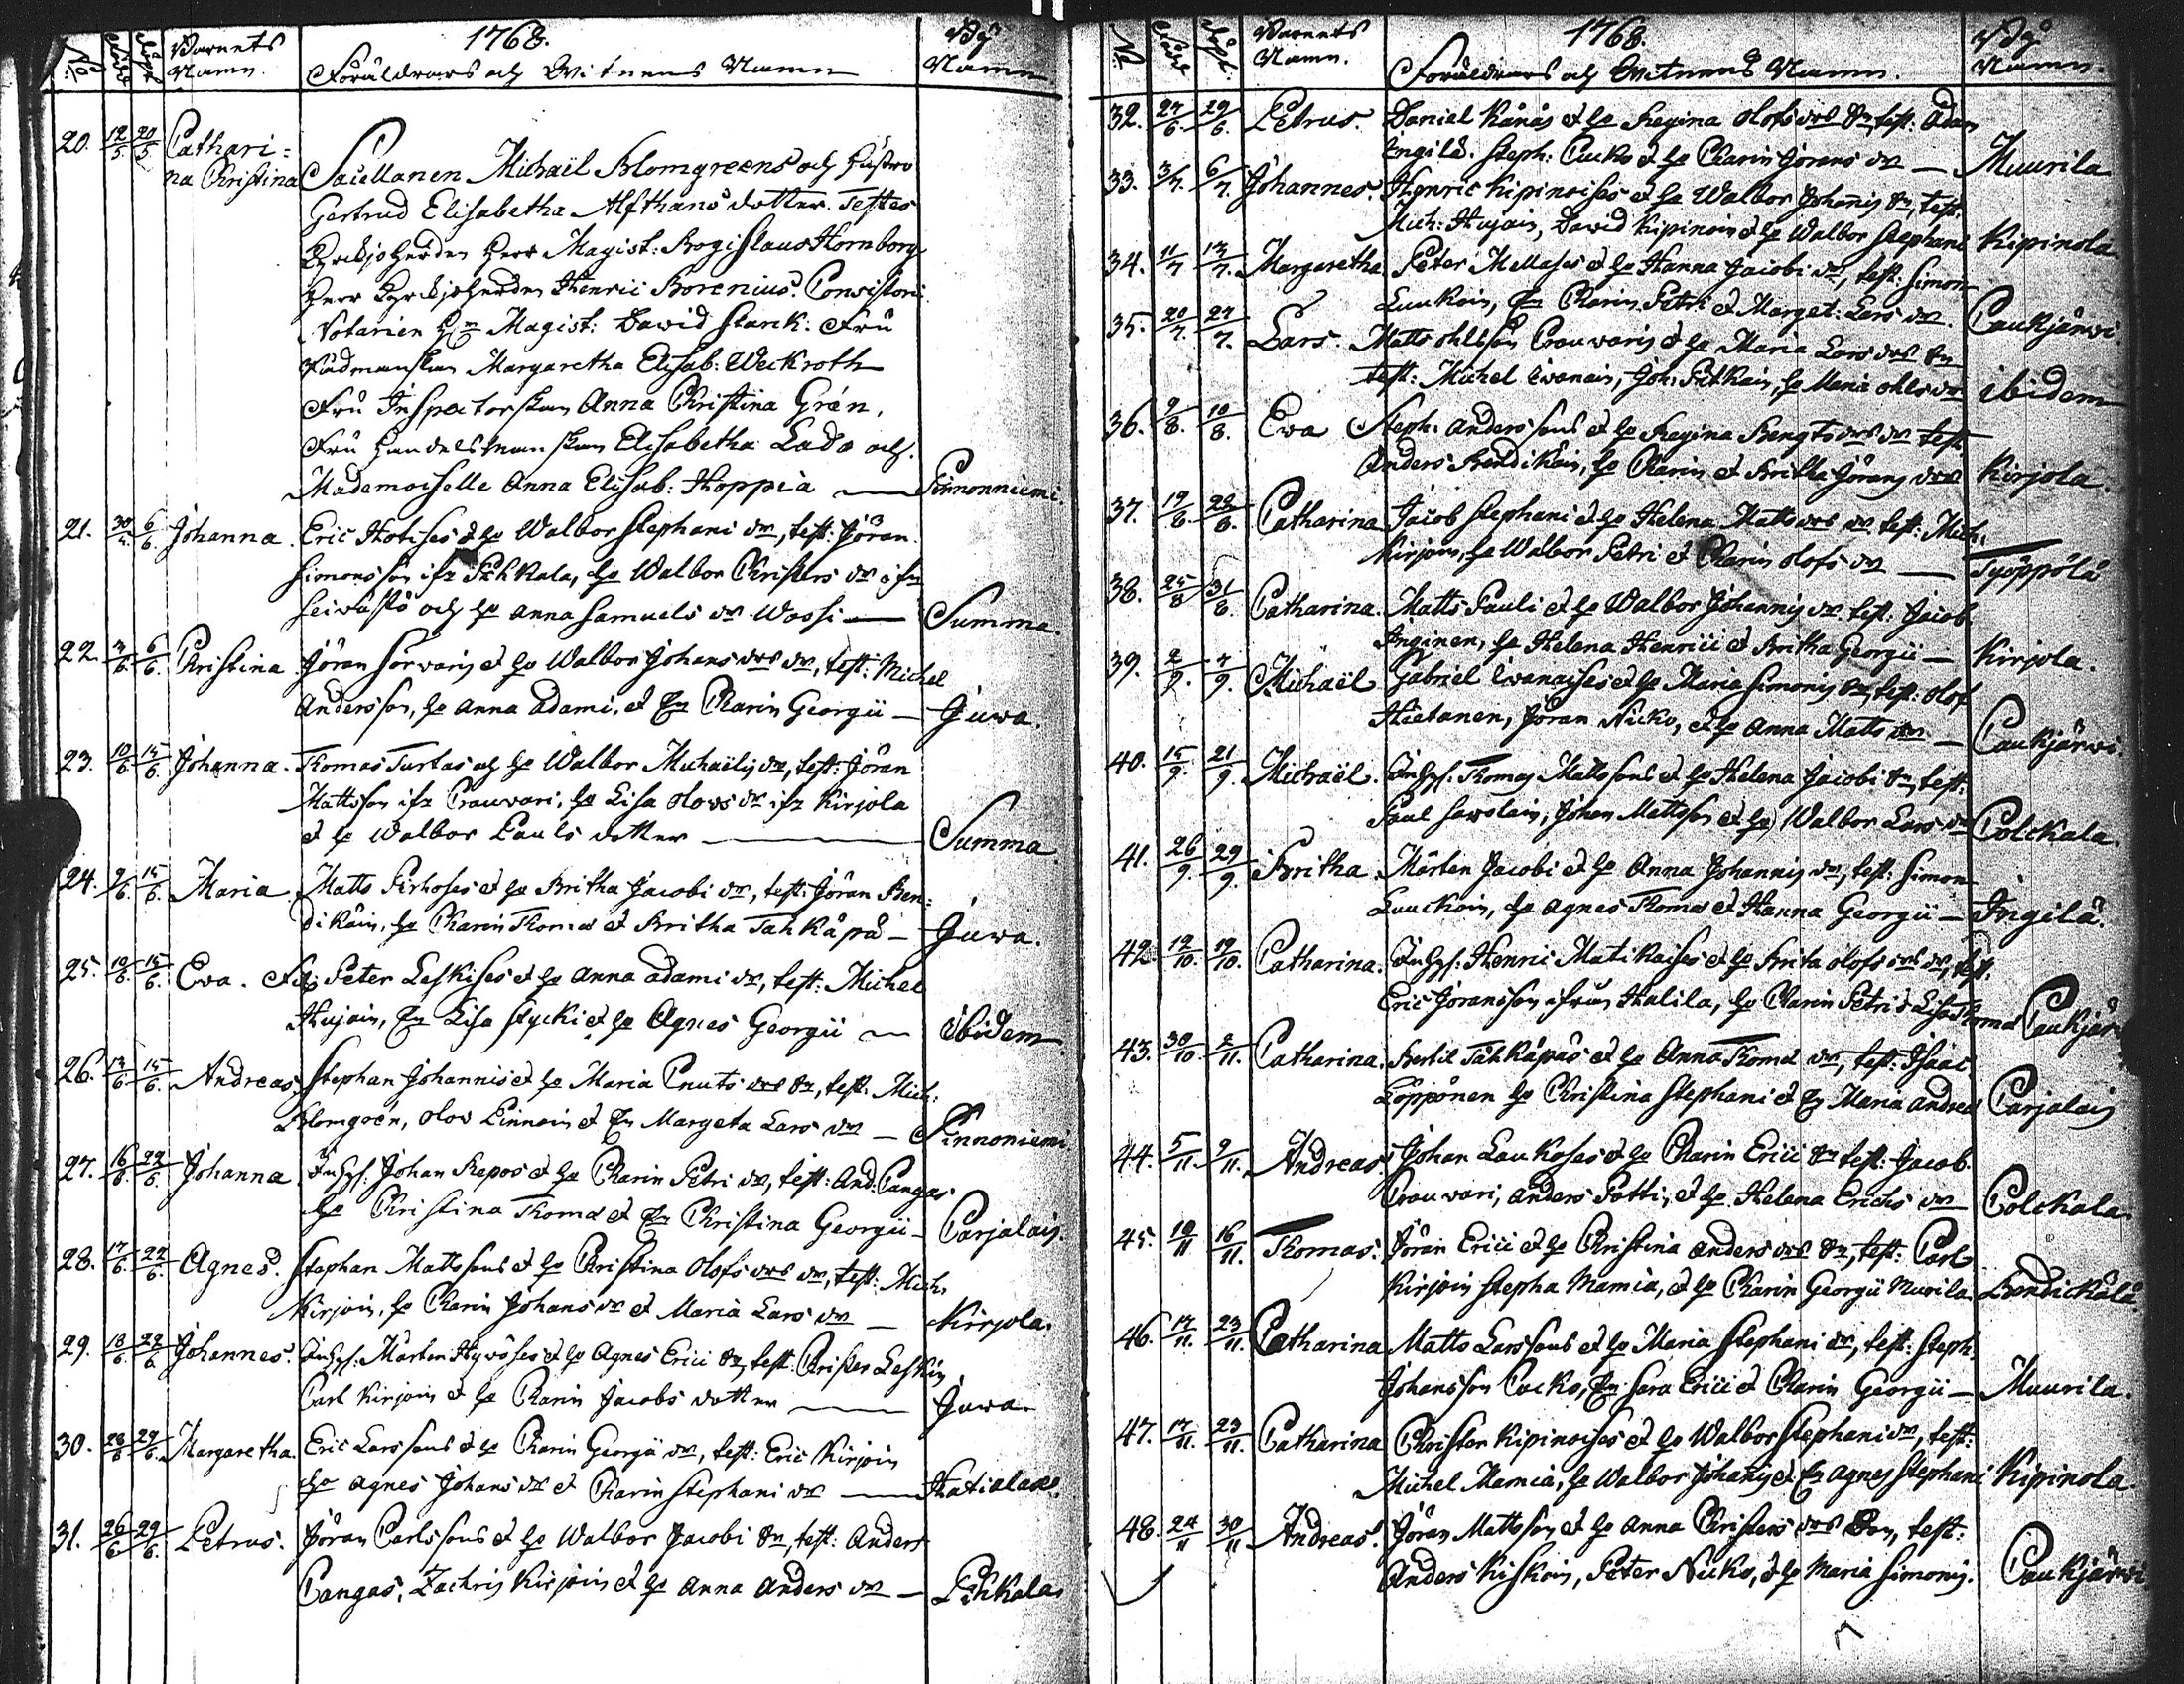 1768.
No. Född Döpt Barnets Namn. Föräldrars och Witnens Namn By Namn
20. 12/5 20/5 Cathari=
na Christina Sacellanen Michaël Blomgreens och hustro
Gertrud Elisabetha Alfthans dotter. Testes
Kyrckjoherden Herr Magist: Bogislaus Hornborg
Herr Kyrckjoherden Henric Borenius. Consistorii
Notarien Magist: David Starck. Fru
Rådmanskan Margaretha Elisab: Weckroth
Fru Inspectorskan Anna Christina Grén,
Fru Handelsmanskan Elisabetha Lado och
Mademoiselle Anna Elisab: Hoppia — Pinnonniemi.
21. 6/6 Johanna. Eric Hotises et ho Walbor Stephani dr, test: Jöran
Simonsson ifr Pihkala, ho Walbor Christers dr ifr
Seivästö och ho Anna Samuels dr Wossi — Summa.
22. 6/6 Christina Jöran Sorvaris et ho Walbor Johans drs dr, test: Michel
Andersson, ho Anna Adami, et Pig Charin Georgii — Juwa.
23. 10/6 15/6 Johanna. Thomas Turtas och ho Walbor Michaëlis dr, test: Jöran
Mattsson ifr Crouvari, ho Lisa Olovs dr ifr Kirjola
et ho Walbor Pauls dotter — Summa.
24. 9/6 15/6 Maria. Matts Pirhoses et ho Britha Jacobi dr, test: Jöran Ben=
dikäin, ho Charin Thomæ et Britha Tahkåpå — Juwa.
25. 10/6 15/6 Eva. Peter Leskises et ho Anna Adami dr, test: Michel
Hujain, Pig Lisa Stycki et ho Agnes Georgii — ibidem
26. 13/6 15/6 Andreas. Stephan Johannis et ho Maria Cnuts drs dr, test: Mich:
Blomgrén, Olov Pinnoin et Pig Margeta Lars dr — Pinnoniemi.
27. 16/6 22/6 Johanna Inhys: Johan Repos et ho Charin Petri dr, test: And. Cangas
ho Christina Thomæ et Pig Christina Georgii — Carjalais.
28. 17/6 22/6 Agnes. Stephan Mattssons et ho Christina Olofs drs dr, test: Mich.
Kirjoin, ho Charin Johans dr et Maria Lars dr — Kirjola.
29. 18/6 22/6 Johannes. Inhys: Mårten Hyvöses et ho Agnes Erici dr, test: Christer Leskin
Carl Kirjoin et ho Charin Jacobs dotter — Juwa.
30. 28/6 29/6 Margaretha. Eric Larssons et ho Charin Georgii dr, test: Eric Kirjoin
ho Agnes Johans dr et Charin Stephani dr — Hatialax.
31. 26/6 29/6 Petrus. Jöran Carlssons et ho Walbor Jacobi dr, test: Anders
Cangas, Zachris Kirjoin et ho Anna Anders dr — Pihkala.
1768.
No. Född Döpt Barnets Namn. Föräldrars och Witnens Namn. By Namn.
32. 27/6 29/6 Petrus. Daniel Känäs et ho Regina Olofs drs dr, test: Adam
Ingilä. Steph: Cucko et ho Charin Jörans dr — Muurila
33. 3/7. 6/7. Johannes. Henric Kipinoises et ho Walbor Johanis dr, test:
Mich: Hujain, David Kipinoin et ho Walbor Stephani Kipinola.
34. 11/7 13/7. Margaretha. Peter Mellases et ho Hanna Jacobi dr, test: Simon
Luukoin, Pig Charin Petri et Marget: Lars dr. Caukjärwi.
35. 20/7. 27/7. Lars. Matts Ohlsson Crouvaris et ho Maria Lars drs dr
test: Michel Ivanain, Joh: Pitkäin, ho Maria Ohls dr ibidem
36. 9/8. 10/8. Eva Steph: Anderssons et ho Regina Bengts drs dr test:
Anders Bendikäin, ho Charin et Britha Jörans drs Kirjola.
37. 19/8. 22/8. Catharina Jacob Stephani et ho Helena Matts drs dr test: Mich.
Kirjoin, ho Walbor Petri et Charin Olofs dr — Työppölä
38. 25/8 31/8. Catharina. Matts Pauli et ho Walbor Johannis dr. test: Jacob
Inginen, ho Helena Henrici et Britha Georgii — Kirjola.
39. 2/9. 4/9. Michaël Gabriel Ivanaises et ho Maria Simonis dr, test: Olof
Hietanen, Jöran Nicko, et ho Anna Matts dr — Caukjärwi.
40. 15/9. 21/9. Michaël. Inhys: Thomas Mattssons et ho Helena Jacobi dr, test:
Paul Savolain, Johan Mattsson et ho Walbor Lars dr Colckala.
41. 26/9. 29/9. Britha. Mårten Jacobi et ho Anna Johannis dr, test: Simon
Luuckoin, ho Agnes Thomæ et Hanna Georgii — Ingilä.
42. 12/10. 19/10. Catharina. Inhys: Henric Matikaises et ho Brita Olofs drs dr, test.
Eric Joransson ifrån Halila, ho Charin Petri et Lisa Thomæ Caukjär
43. 30/10 2/11. Catharina. Bertil Tähkäpäs et ho Anna Thomæ dr, test: Isaac
Löppönen ho Christina Stephani et Pig Maria Andreæ Carjalais
44. 5/11. 9/11. Andreas. Johan Laukoses et ho Charin Erici dr test: Jacob
Crouvari, Anders Potti, et ho Helena Erichs dr Colckala.
45. 10/11 16/11. Thomas. Jöran Erici et ho Christina Anders drs dr, test: Carl
Kirjoin Stepha Mamia, et ho Charin Georgii Murila. Bendickälä
46. 17/11. 23/11. Catharina Matts Larssons et ho Maria Stephani dr, test: Steph.
Johansson Cucko, Pig Sara Erici et Charin Georgii — Muurila.
47. 17/11. 23/11. Catharina Christer Kipinoises et ho Walbor Stephani dr, test:
Michel Mamia, ho Walbor Johanis et Pig Agnes Stephani Kipinola.
48. 24/11 30/11 Andreas. Jöran Mattsson et ho Anna Christers drs test:
Anders Kiskoin, Peter Nicko, et ho Maria Simonis. Caukjärwi